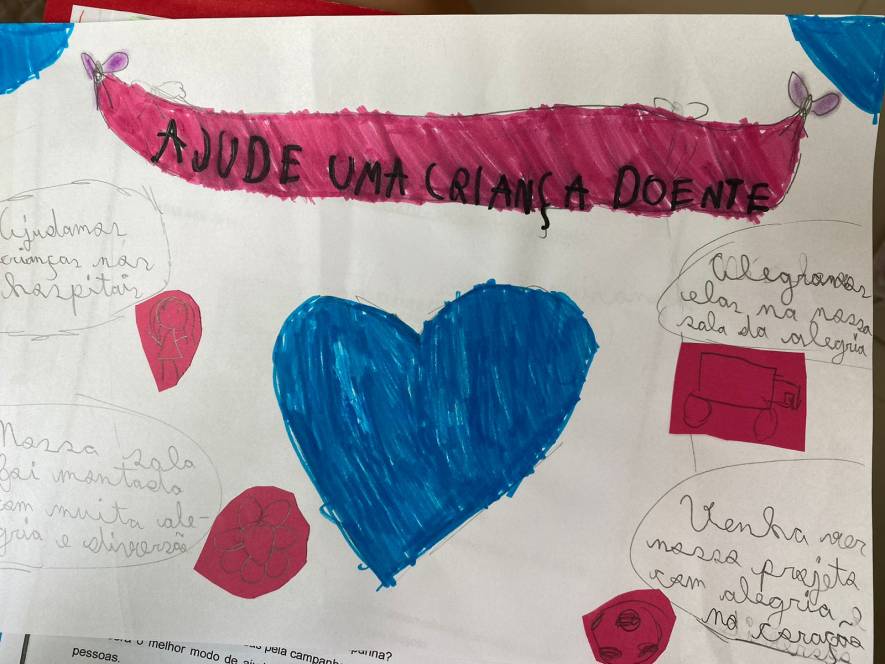 AJUDE UMA CRIANÇA DOENTE
Ajudamos
crianças nos
hospitais
Alegramos
elas na nossa
sala da alegria
Nossa sala
foi montada
com muita ale-
gria e diversão
Venha ver
nosso projeto
com alegria
no coração
o melhor modo de
pela campanh
pessoas.